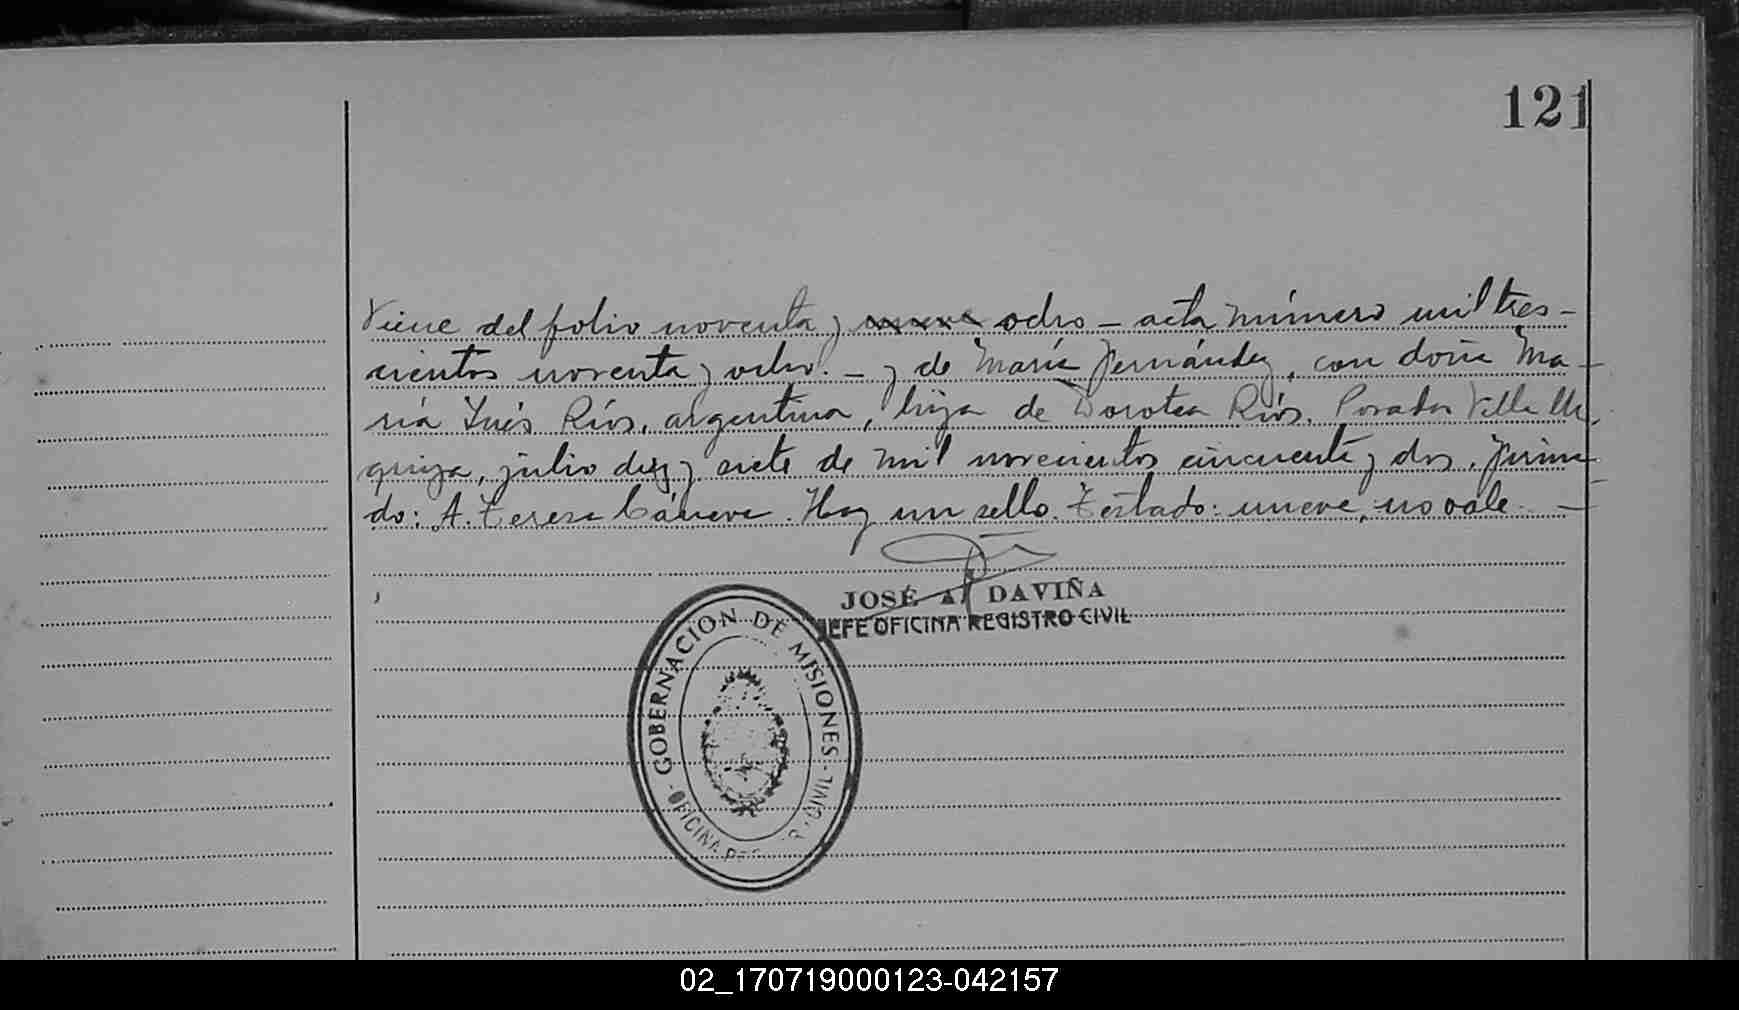 121
Viene del folio noventa y nueve ocho – acta número mil tres-
cientos noventa y ocho. – y de María Fernández, con doña Ma-
ría Inés Ríos, argentina, hija de Dorotea Ríos. Posadas Villa Ur
quiza, julio diez y siete de mil novecientos cincuenta y dos. Firma
do: A. Teresa Cáneva. Hay un sello. Testado: nueve, no vale. –
JOSÉ A. DAVIÑA
JEFE OFICINA REGISTRO CIVIL
GOBERNACION DE MISIONES
- OFICINA CIVIL -
02_170719000123-042157